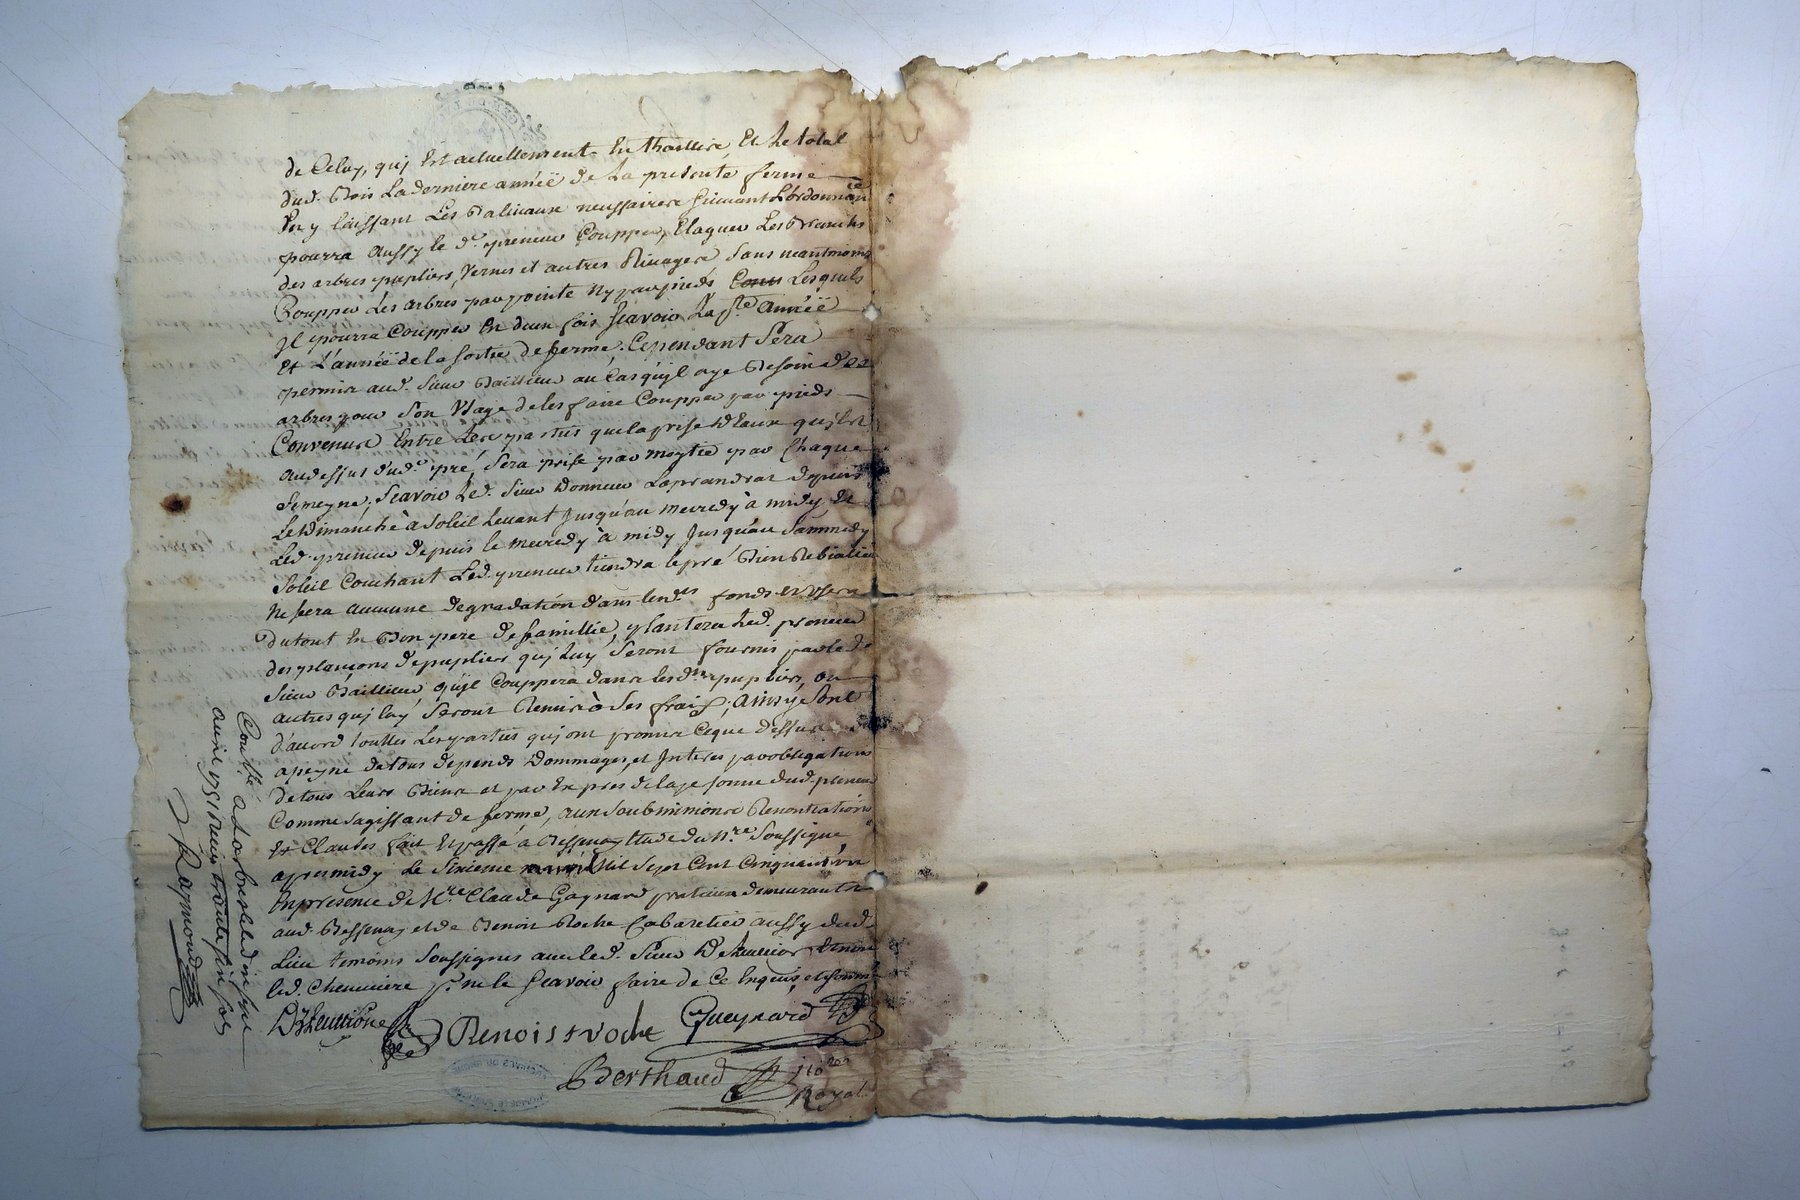 de Celuy, quj Est actuellement En thaillice Et Le total
dud. Bois La derniere annéë de La presente ferme
En y laissant Les Baliveaux nessaires suivant Lordonnance
pourra Aussy le d. preneur Coupper, Elaguer Les Branches
des arbres pupliers, vernes et autres Rivages sans neantmoins
Coupper Les arbres par pointe Ny par pieds Lesquels
Jl pourra Coupper En deux fois scavoir La annéë
Et L'annéë de la sortie de ferme. Cependant Sera
permis aud. Sieur Bailleur au Cas quyl aye Besoin des
arbres pour Son Usage de les faire Coupper par pieds
Convenus Entre Les parties que la prise D'Eaux quj Est
au dessus dud. pré, Sera prise par moytié par Chaque
semeyne, scavoir Led. Sieur Donneur La prandrat depuis
Le Dimanche à Soleil Levant Jusqu'au mecredy à midy Et
Led. preneur depuis le mecredy à midy Jusqu'au Sammedy
Soleil Couchant Led. preneur tiendra le pré Bien
Ne fera aucune degradation dans fonds Et Usera
du tout En Bon pere de famillie, plantera Led. preneur
des plançons de pupliers quj Luy Seront fournis par le d.
Sieur Bailleur qujl Couppera dans les pupliers, ou
autres quj luy Seront Remis à Ses fraix; Ainsy Sont
d'accord touttes Les parties quj ont promis Ceque dessus
a peyne de tous depends Dommages, et Interes par obligations
de tous Leurs Biens et par Expres de la personne dud. preneur
Comme sagissant de ferme, aux Soubmissions Renontiations
Et Clauses fait Et passé à Bessenay Etude du Nre. Soussigné
apres midy Le Sixieme mil Sept Cent Cinquante
En presence de Mre. Claude Gaynard praticien demeurant
aud. Bessenay et de Benoit Roche Cabaretier aussy dud.
Lieu temoins Soussignes avec led. Sieur
led. Chemiere pr. ne le scavoir faire de Ce Enquis et Somme
Benoist roche Gueynard
Berthaud
Royal
Conllé à Larbresle
Raymond